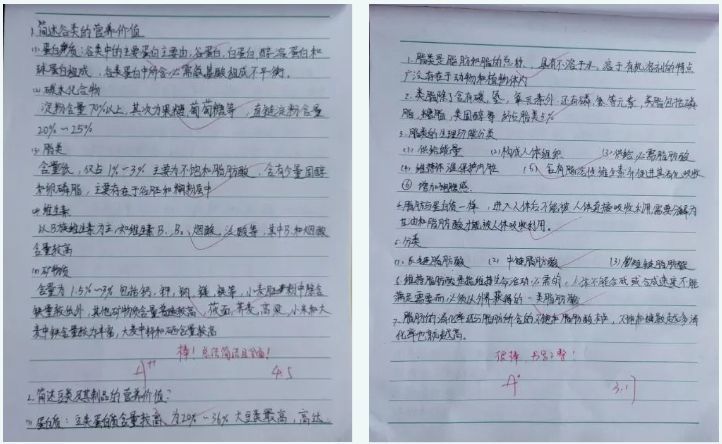 1.简述谷类的营养价值
(1)蛋白质:谷类中的主要蛋白主要由:谷蛋白,白蛋白,醇溶蛋白和
球蛋白组成,谷类蛋白中所含必需氨基酸组成不平衡。
(2)碳水化合物
淀粉含量70%以上,其次为果糖,葡萄糖等,直链淀粉含量
20%~25%
(3)脂类
含量低,仅占1%~3%主要为不饱和脂肪酸,含有少量固醇
和卵磷脂,主要存在于谷胚和糊粉层中
(4)维生素
以B族维生素为主,如维生素B1、B2、烟酸、泛酸等,其中B1和烟酸
含量较高
(5)矿物质
含量为1.5%~3%包括钙,钾,钠,镁,铁等,小麦胚
铁量较丰富,大麦中锌和硒含量较高
棒!总结简洁且全面!
A++
4.5
2.简述豆类及其制品的营养价值?
(1)蛋白质:豆类蛋白质含量较高,为20%~36%大豆类最高,高达
1.脂类是脂肪和脂的总称,具有不溶于水,溶于有机溶剂的特点
广泛存在于动物和植物体内
2.类脂除了含有碳、氢、氧元素外,还有磷、氮等元素,类脂包括磷
脂,糖脂,类固醇等,约占脂类5%
3.脂类的生理功能分类
(1)供给能量 (2)构成人体组织 (3)供给必需脂肪酸
(4)维持体温保护内脏
增加饱腹感
4.脂肪与蛋白质一样,进入人体后不能被人体直接吸收利用,需要分解为
甘油和脂肪酸才能被人体吸收利用。
5.分类
(1)长链脂肪酸 (2)中链脂肪酸 (3)短链脂肪酸
人体不能合成或合成速度不能
满足需要而必须从外界获得的一类脂肪酸
7.脂肪的消化率还与脂肪所含的不饱和脂肪酸有关,不饱和键数越多消
化率也就越高。
很棒
A+
3.17